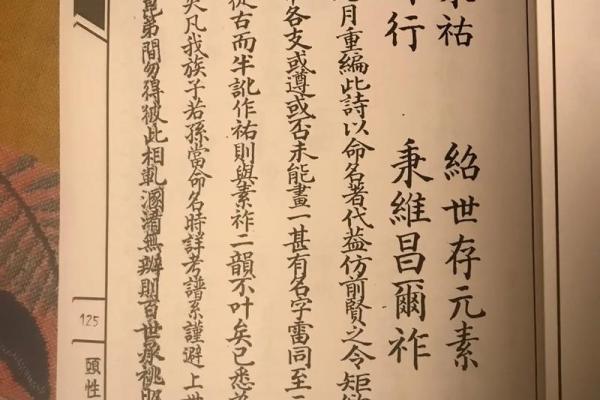 祜 紹世存元素
行 秉維昌爾祚
月重編此詩以命名著代益仿前賢之令矩
各支或遵或否未能畫一甚有名字雷同至
從古而半訛作祐則與素祚二韻不叶矣已悉
矣凡我族子若孫當命名時詳考譜系謹避上世
弟間勿得彼此相軋溷淆無辨則百世承祧
125
頭性